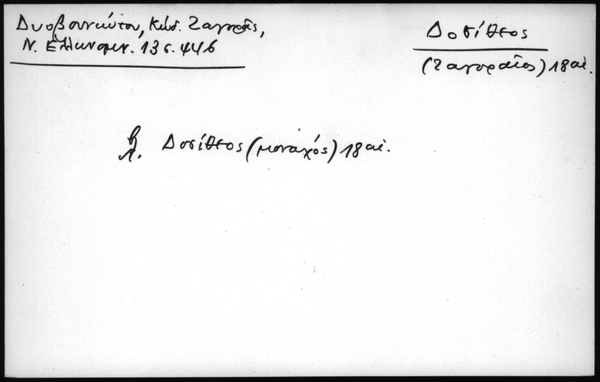 Δυοβουνιώτου, Κώδ. Ζαγορᾶς,
Ν. Ἑλληνομν. 13 σ. 446
Δοσίθεος
(Ζαγοραῖος) 18 αἰ.
βλ. Δοσίθεος (μοναχός) 18 αἰ.